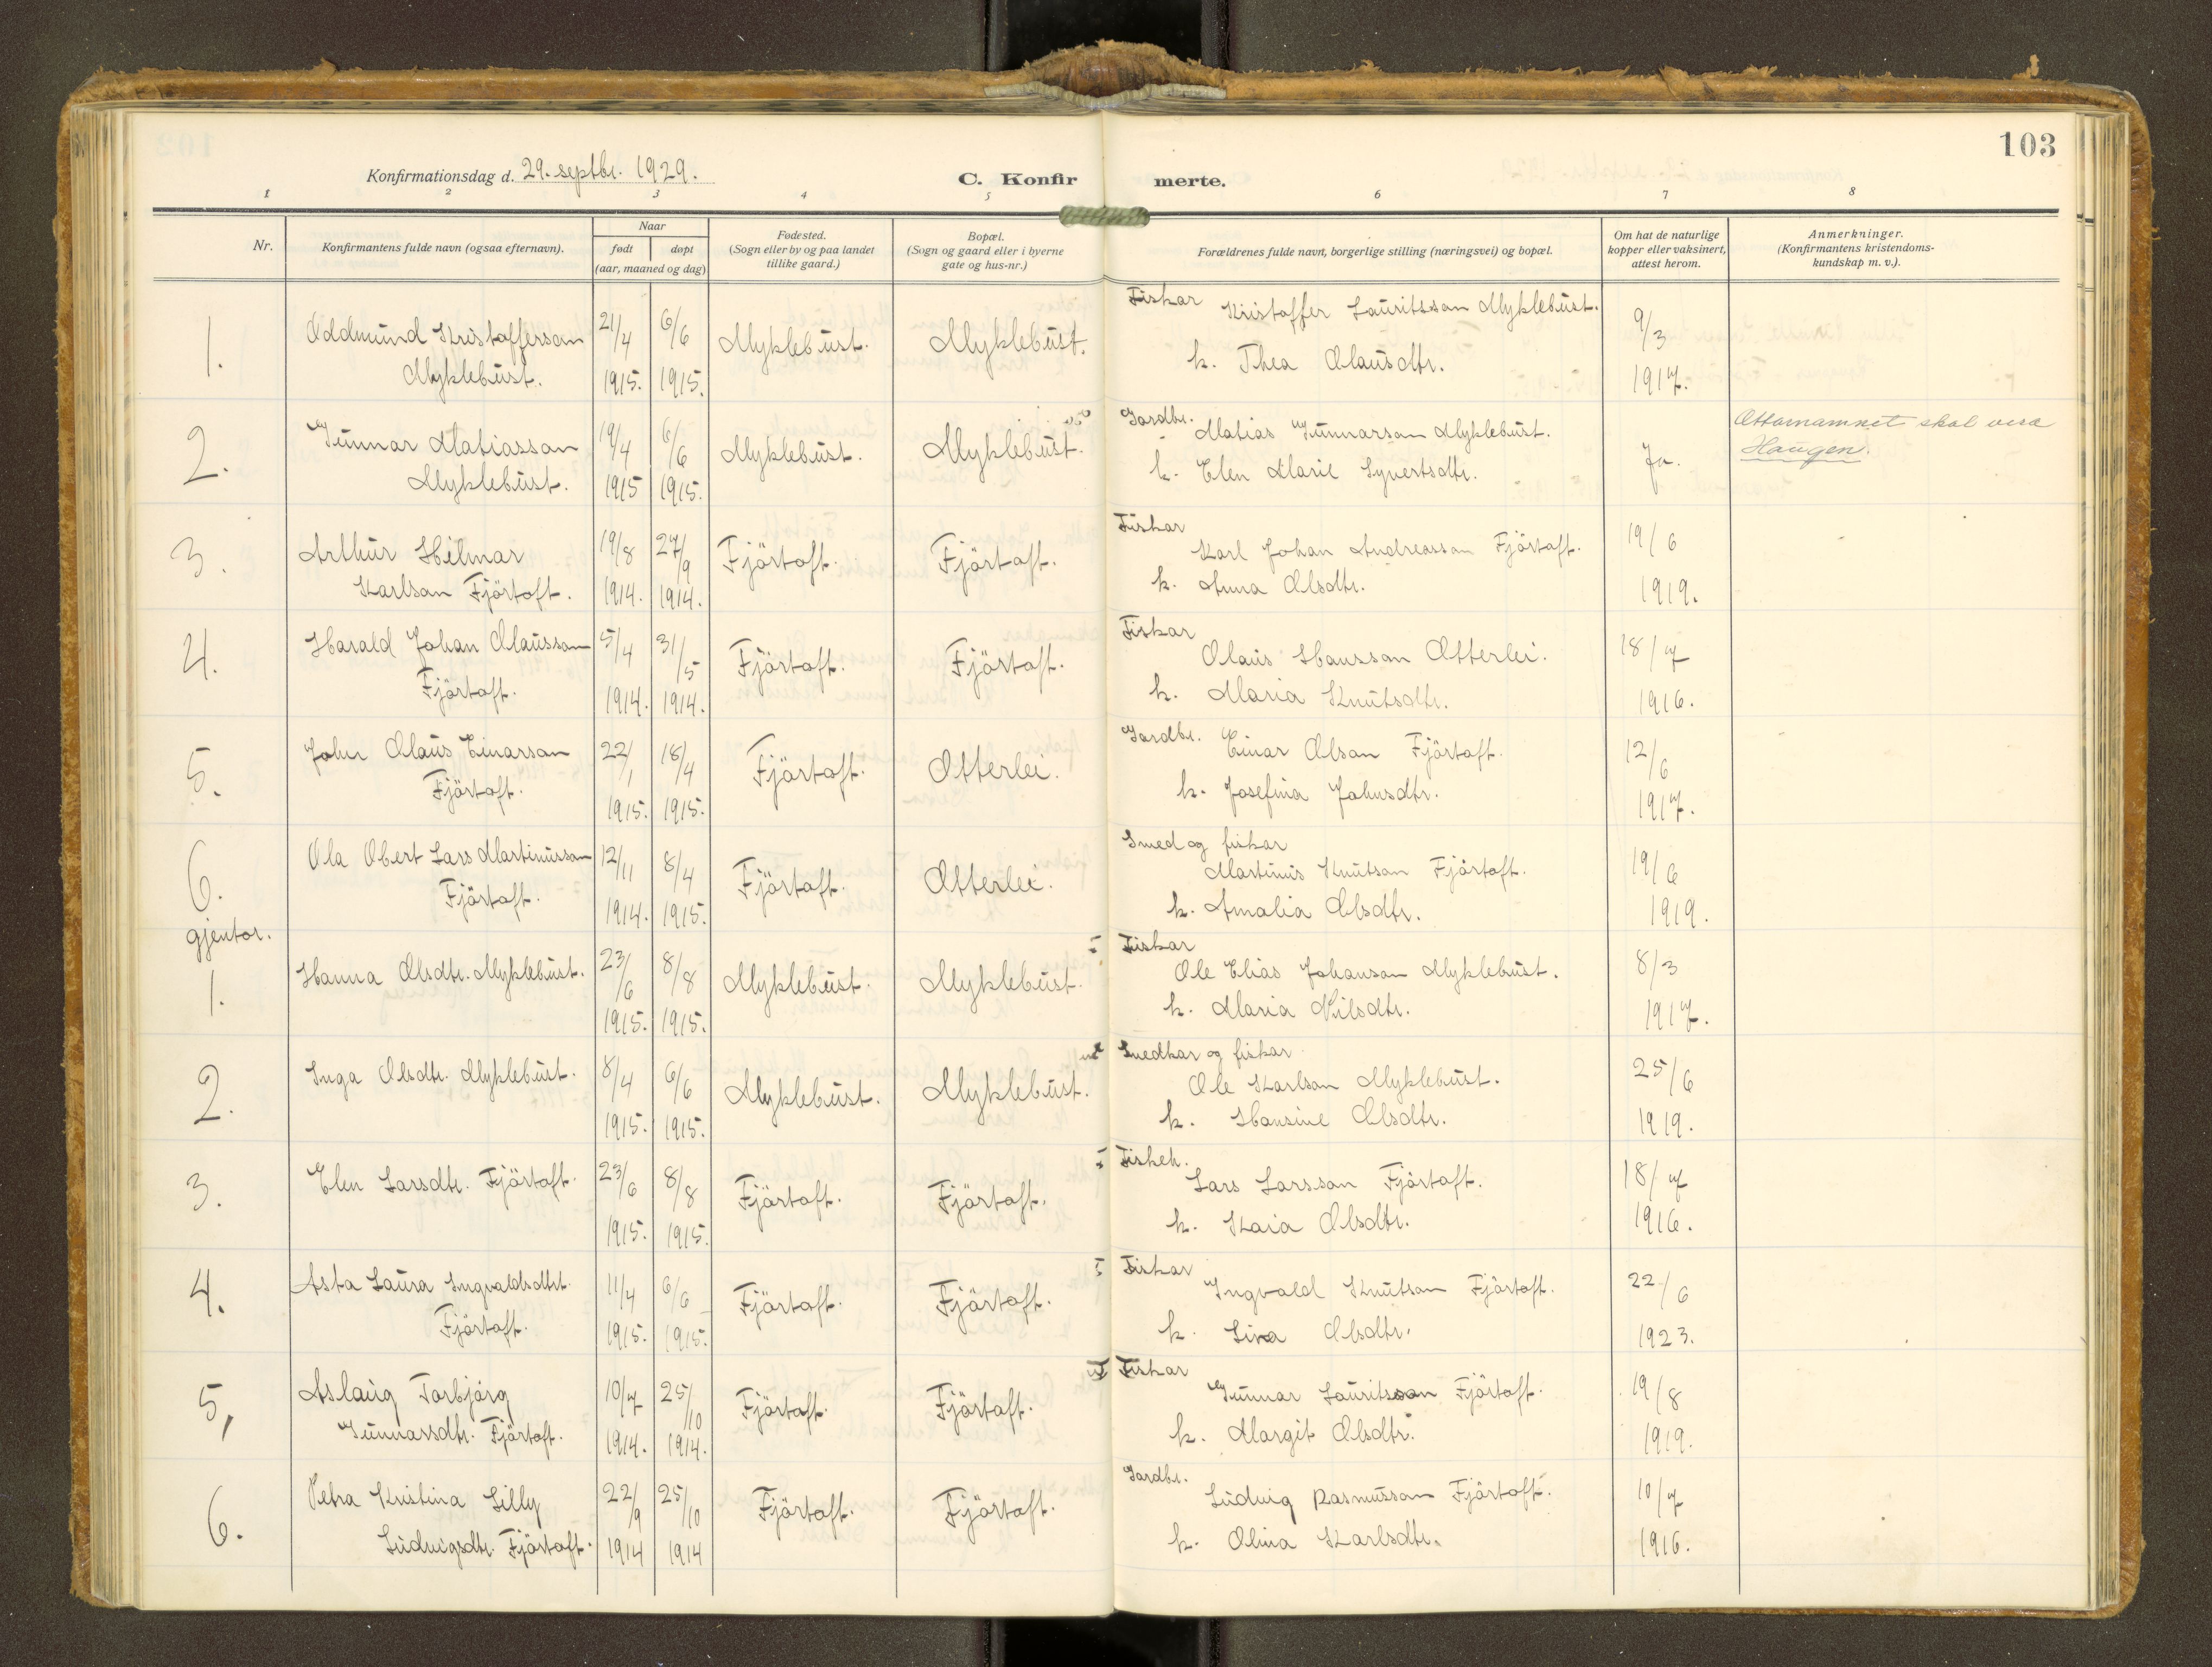 103
Konfirmationsdag d. 29. septbr. 1929.
C. Konfirmerte.
1 2 3 4 5 6 7 8
Nr.
Konfirmantens fulde navn (ogsaa efternavn).
Naar
født døpt
(aar, maaned og dag)
Fødested.
(Sogn eller by og paa landet
tillike gaard.)
Bopæl.
(Sogn og gaard eller i byerne
gate og hus-nr.)
Forældrenes fulde navn, borgerlige stilling (næringsvei) og bopæl.
Om hat de naturlige
kopper eller vaksinert,
attest herom.
Anmerkninger.
(Konfirmantens kristendoms-
kundskap m. v.).
1. Oddmund Kristofferson 21/4 6/6 Myklebust. Myklebust. Fiskar Kristoffer Lauritsson Myklebust. 9/3
Myklebust. 1915. 1915. k. Thea Olausdtr. 1917.
2. Gunnar Matiasson 19/4 6/6 Myklebust. Myklebust. Gardbr. Matias Gunnarson Myklebust. Ja. Ættarnamnet skal vera
Myklebust. 1915 1915. k. Elen Marie Syvertsdtr. Haugen.
3. Arthur Hilmar 19/8 27/9 Fjörtoft. Fjörtoft. Fiskar Karl Johan Andreasson Fjörtoft. 19/6
Karlson Fjörtoft. 1914. 1914. k. Anna Olsdtr. 1919.
4. Harald Johan Olausson 5/4 31/5 Fjörtoft. Fjörtoft. Fiskar Olaus Hansson Otterlei. 18/7
Fjörtoft. 1914. 1914. k. Maria Knutsdtr. 1916.
5. John Olaus Einarson 22/1 18/4 Fjörtoft. Otterlei. Gardbr. Einar Olson Fjörtoft. 12/6
Fjörtoft. 1915. 1915. k. Josefina Johnsdtr. 1917.
6. Ola Obert Lars Martinusson 12/11 8/4 Fjörtoft. Otterlei. Smed og fiskar Martinus Knutson Fjörtoft. 19/6
Fjörtoft. 1914. 1915. k. Amalia Olsdtr. 1919.
gjentor.
1. Hanna Olsdtr. Myklebust. 23/6 8/8 Myklebust. Myklebust. Fiskar Ole Elias Johanson Myklebust. 8/3
1915. 1915. k. Maria Nilsdtr. 1917.
2. Inga Olsdtr. Myklebust. 8/4 6/6 Myklebust. Myklebust. Snedkar og fiskar Ole Karlson Myklebust. 25/6
1915. 1915. k. Hansine Olsdtr. 1919.
3. Elen Larsdtr. Fjörtoft. 23/6 8/8 Fjörtoft. Fjörtoft. Lars Larsson Fjörtoft. 18/7
1915. 1915. k. Kaia Olsdtr. 1916.
4. Asta Laura Ingvaldsdtr. 11/4 6/6 Fjörtoft. Fjörtoft. Fiskar Ingvald Knutson Fjörtoft. 22/6
Fjörtoft. 1915. 1915. k. Lina Olsdtr. 1923.
5, Aslaug Torbjörg 10/7 25/10 Fjörtoft. Fjörtoft. Fiskar Gunnar Lauritsson Fjörtoft. 19/8
Gunnarsdtr. Fjörtoft. 1914. 1914. k. Margit Olsdtr. 1919.
6. Petra Kristina Lilly 22/9 25/10 Fjörtoft. Fjörtoft. Gardbr. Ludvig Rasmusson Fjörtoft. 10/7
Ludvigsdtr. Fjörtoft. 1914 1914 k. Olina Karlsdtr. 1916.